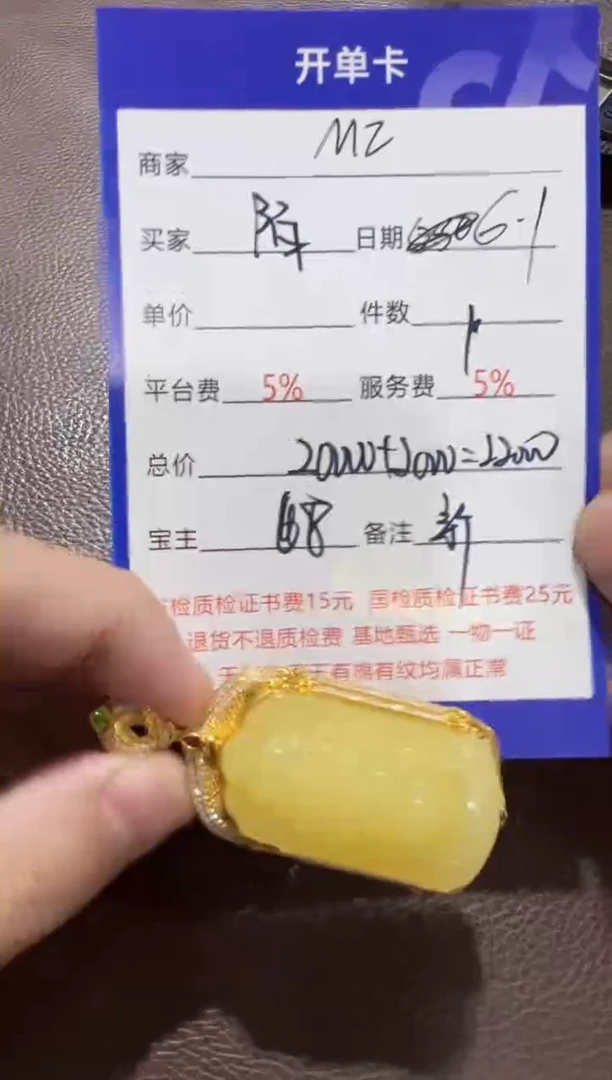 开单卡
商家 MZ
买家 日期 6.1
单价 件数 1
平台费 5% 服务费 5%
总价 20000+2000=22000
宝主 168 备注 新
检质检证书费15元 国检质检证书费25元
退货不退质检费 基地甄选 一物一证
有棉有纹均属正常